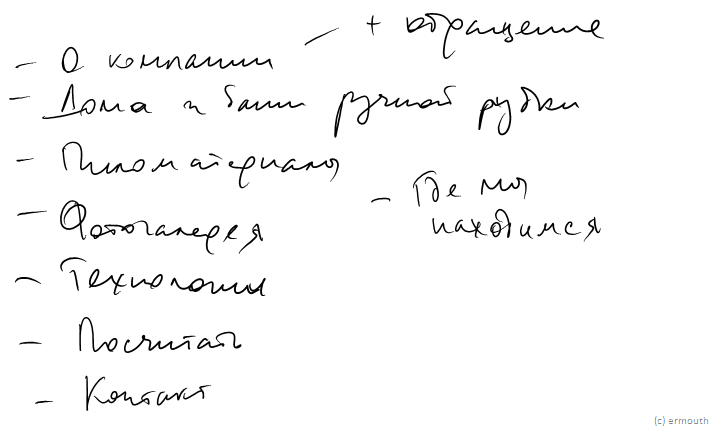 - О компании - + обращение
- Дома и бани ручной рубки
- Пиломатериалы
- Фотогалерея
- Где мы
находимся
- Технологии
- Посчитать
- Контакт
(c) ermouth